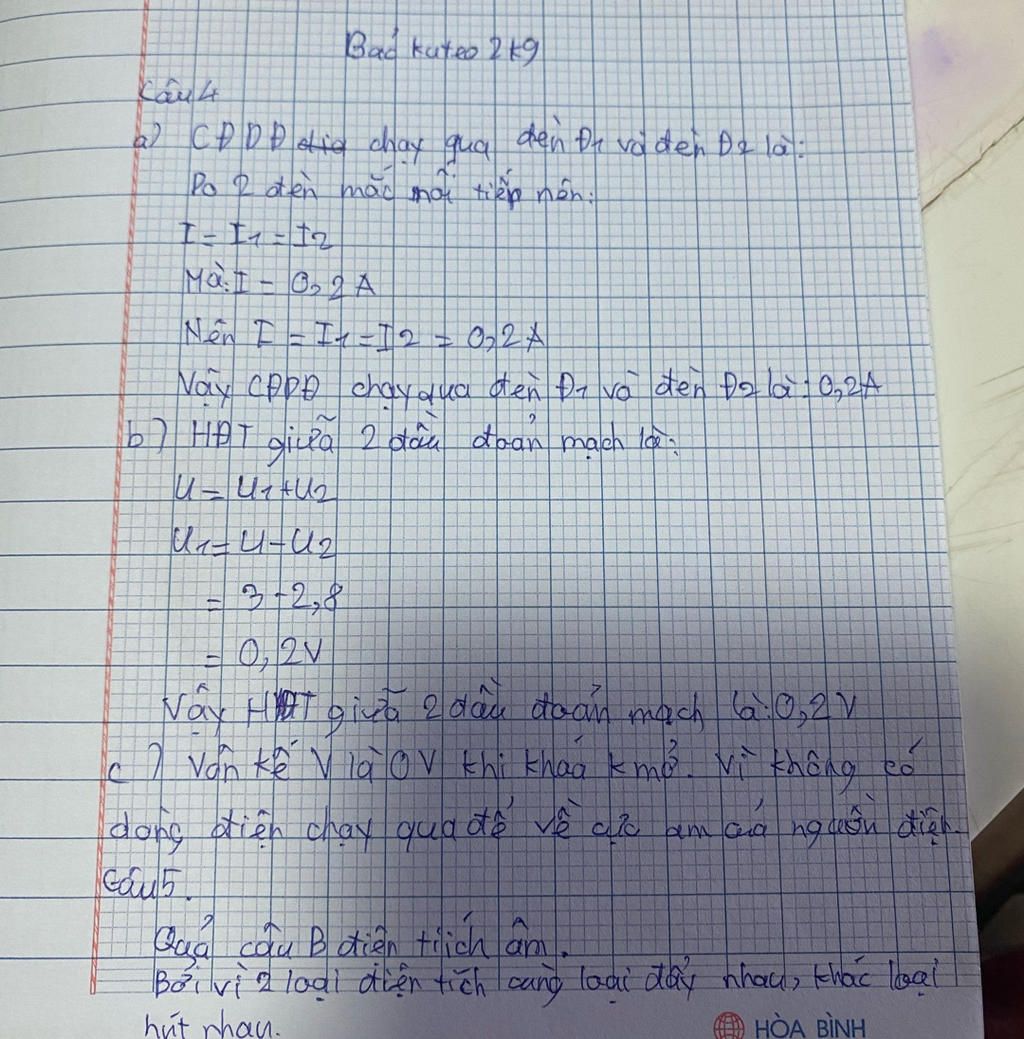 Bad kuteo 2k9
Câu 4
a) CĐDĐ chạy qua đèn Đ1 và đèn Đ2 là:
Do 2 đèn mắc nối tiếp nên:
I = I1 = I2
Mà: I = 0,2A
Nên I = I1 = I2 = 0,2A
Vậy CĐDĐ chạy qua đèn Đ1 và đèn Đ2 là: 0,2A
b) HĐT giữa 2 đầu đoản mạch là:
U = U1 + U2
U1 = U - U2
= 3 - 2,8
= 0,2V
Vậy HĐT giữa 2 đầu đoản mạch là: 0,2V
c) Vôn kế V là 0V khi khoá k mở. Vì không có
dòng điện chạy qua để về cực âm của nguồn điện.
Câu 5.
Quả cầu B điện tích âm.
Bởi vì 2 loại điện tích cùng loại đẩy nhau, khác loại
hút nhau.
HÒA BÌNH